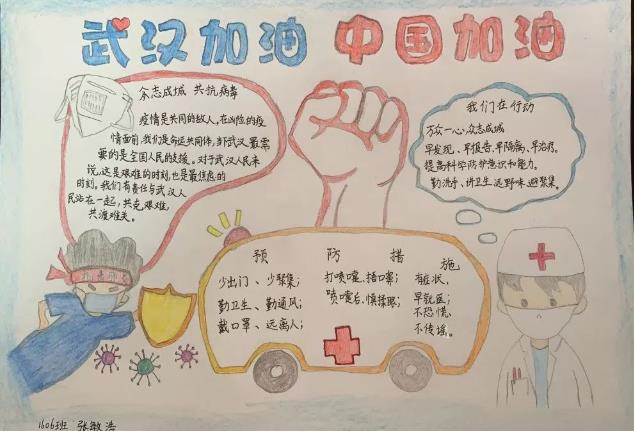 武汉加油 中国加油
众志成城 共抗病毒
疫情是共同的敌人,在凶险的疫
情面前,我们是命运共同体,当下武汉最需
要的是全国人民的支援。对于武汉人民来
说,这是艰难的时刻,也是最焦虑的
时刻。我们有责任与武汉人
民站在一起,共克艰难,
共渡难关。
我们在行动
万众一心,众志成城
早发现、早报告、早隔离、早治疗。
提高科学防护意识和能力。
勤洗手、讲卫生、远野味、避聚集。
预 防 措 施
少出门、少聚集;
勤卫生、勤通风;
戴口罩、远离人;
打喷嚏、捂口鼻;
喷嚏后、慎揉眼;
有症状,
早就医;
不恐慌,
不传谣。
1606班 张敏浩